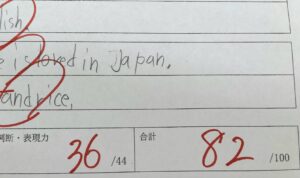 lish
e is loved in Japan.
and rice,
判断・表現力 36 /44 合計 82 /100